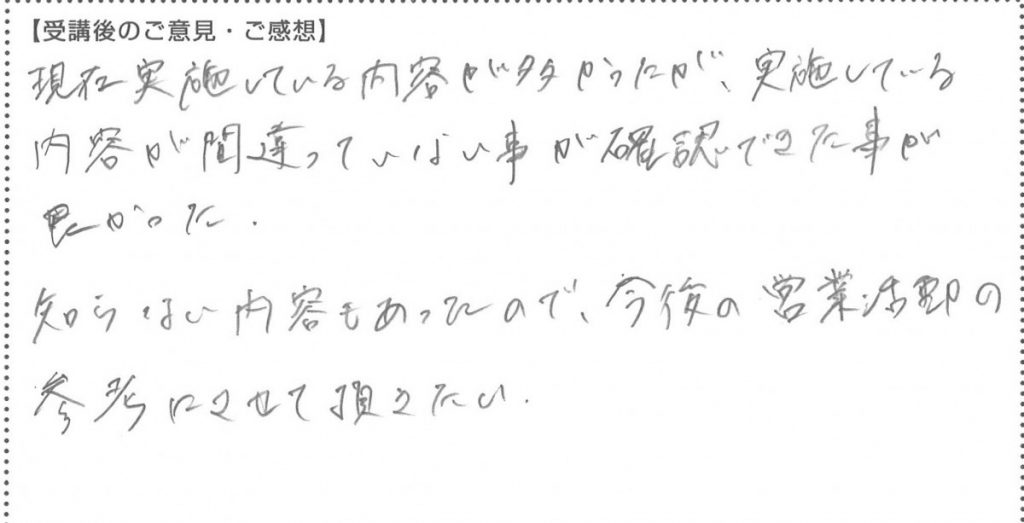 【受講後のご意見・ご感想】
現在実施している内容が多かったが、実施している
内容が間違っていない事が確認できた事が
良かった.
知らない内容もあったので、今後の営業活動の
参考にさせて頂きたい.